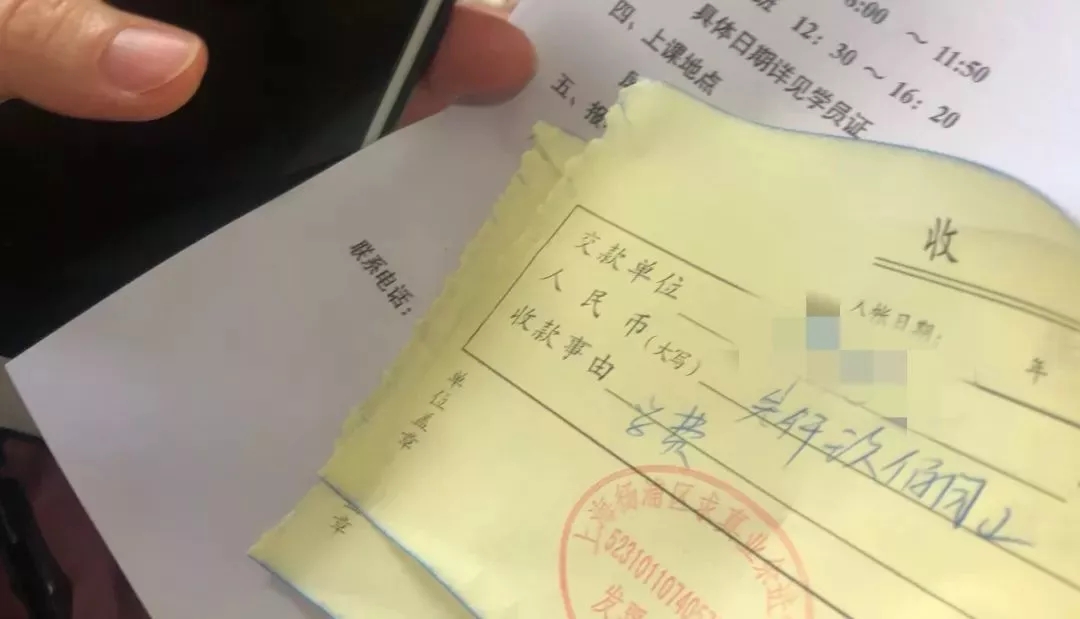 8:00 ～ 11:50
班 12：30 ～ 16：20
具体日期详见学员证
四、上课地点
五、报
联系电话：
收
入帐日期： 年
交款单位
人民币(大写) 柒仟 佰 止
收款事由 学费
单位盖章
章
上海杨浦区求直业余
5231011074057
发票